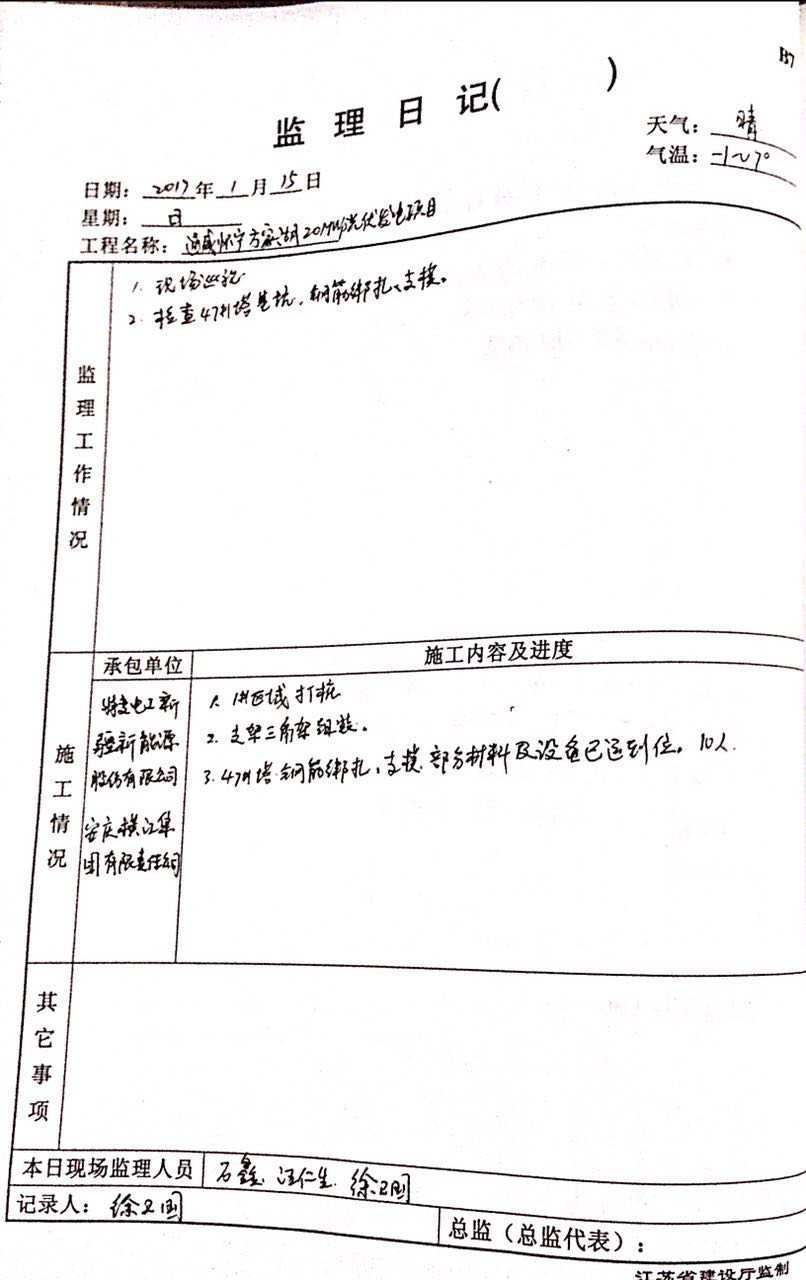 B7
监理日记( )
天气：晴
气温：-1~7°
日期：2017年1月15日
星期：日
工程名称：通威怀宁方家湖20MW光伏发电项目
监理工作情况
1. 现场巡视
2. 检查47#塔基坑、钢筋绑扎、支模。
施工情况
承包单位
施工内容及进度
特变电工新
疆新能源
股份有限公司
安庆横江集
团有限责任公司
1. 1#区域打桩
2. 支架三角架组装。
3. 47#塔钢筋绑扎、支模 部分材料及设备已运到位。10人
其它事项
本日现场监理人员 石鑫、汪仁生、徐卫国
记录人：徐卫国
总监（总监代表）：
江苏省建设厅监制